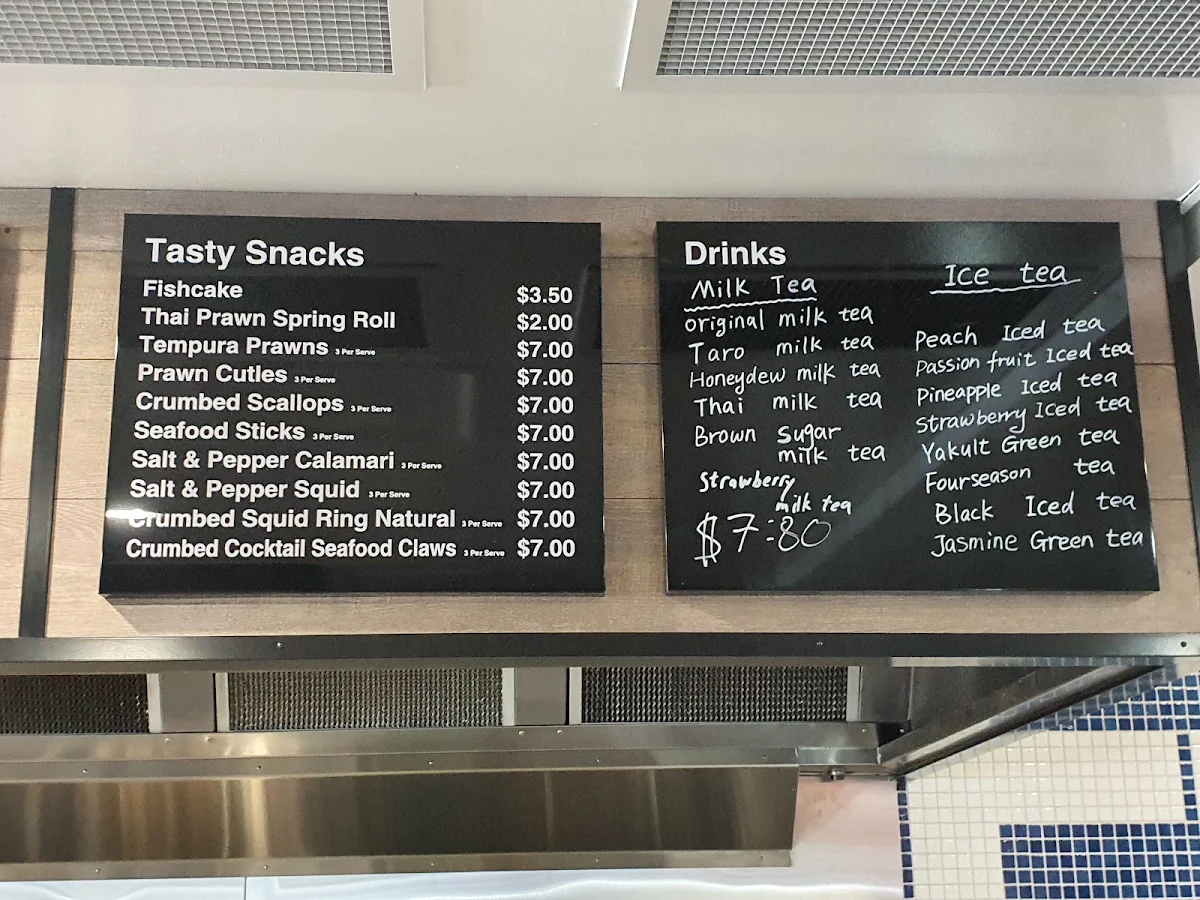 Tasty Snacks
Fishcake $3.50
Thai Prawn Spring Roll $2.00
Tempura Prawns 3 Per Serve $7.00
Prawn Cutles 3 Per Serve $7.00
Crumbed Scallops 3 Per Serve $7.00
Seafood Sticks 3 Per Serve $7.00
Salt & Pepper Calamari 3 Per Serve $7.00
Salt & Pepper Squid 3 Per Serve $7.00
Crumbed Squid Ring Natural 3 Per Serve $7.00
Crumbed Cocktail Seafood Claws 3 Per Serve $7.00
Drinks
Milk Tea
original milk tea
Taro milk tea
Honeydew milk tea
Thai milk tea
Brown sugar
milk tea
Strawberry
milk tea
$7.80
Ice tea
Peach Iced tea
Passion fruit Iced tea
Pineapple Iced tea
Strawberry Iced tea
Yakult Green tea
Fourseason tea
Black Iced tea
Jasmine Green tea